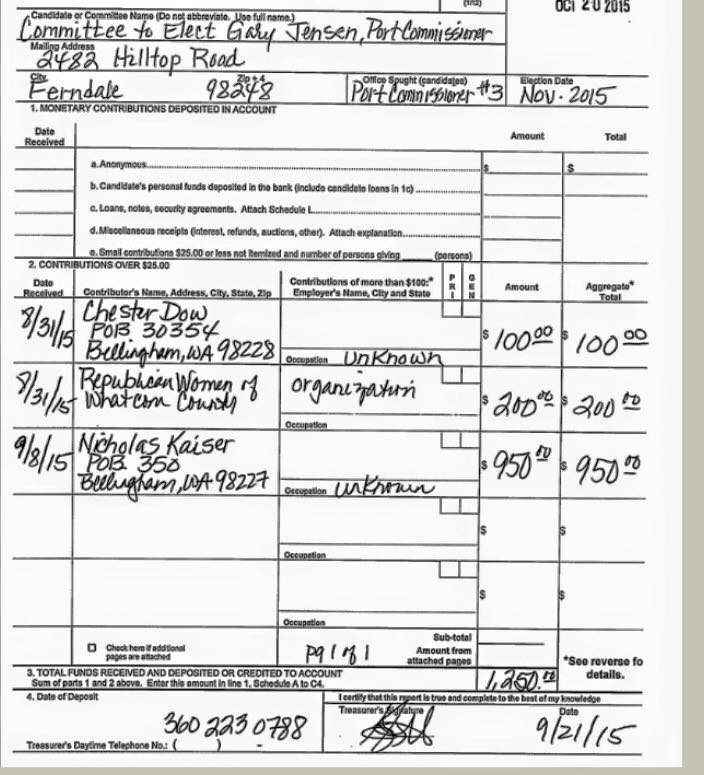 (1/12)
OCT 20 2015
Candidate or Committee Name (Do not abbreviate. Use full name.)
Committee to Elect Gary Jensen, Port Commissioner
Mailing Address
2482 Hilltop Road
City Zip + 4 Office Sought (candidates) Election Date
Ferndale 98248 Port Commissioner #3 Nov. 2015
1. MONETARY CONTRIBUTIONS DEPOSITED IN ACCOUNT
Date Received Amount Total
a. Anonymous $ $
b. Candidate's personal funds deposited in the bank (include candidate loans in 1c)
c. Loans, notes, security agreements. Attach Schedule L
d. Miscellaneous receipts (interest, refunds, auctions, other). Attach explanation
e. Small contributions $25.00 or less not itemized and number of persons giving ______ (persons)
2. CONTRIBUTIONS OVER $25.00
Date Received Contributor's Name, Address, City, State, Zip Contributions of more than $100:* Employer's Name, City and State PRI GEN Amount Aggregate* Total
8/31/15 Chester Dow
POB 30354
Bellingham, WA 98228
Occupation Unknown
$ 100 00 $ 100 00
8/31/15 Republican Women of
Whatcom County
organization
Occupation
$ 200 00 $ 200 00
9/8/15 Nicholas Kaiser
POB 350
Bellingham, WA 98227
Occupation unknown
$ 950 00 $ 950 00
Occupation
$ $
Occupation
$ $
Check here if additional pages are attached
pg 1 of 1
Sub-total
Amount from attached pages
*See reverse fo
details.
3. TOTAL FUNDS RECEIVED AND DEPOSITED OR CREDITED TO ACCOUNT
Sum of parts 1 and 2 above. Enter this amount in line 1, Schedule A to C4.
1,250.00
4. Date of Deposit
I certify that this report is true and complete to the best of my knowledge
Treasurer's Signature Date
360 223 0788
9/21/15
Treasurer's Daytime Telephone No.: ( ) -